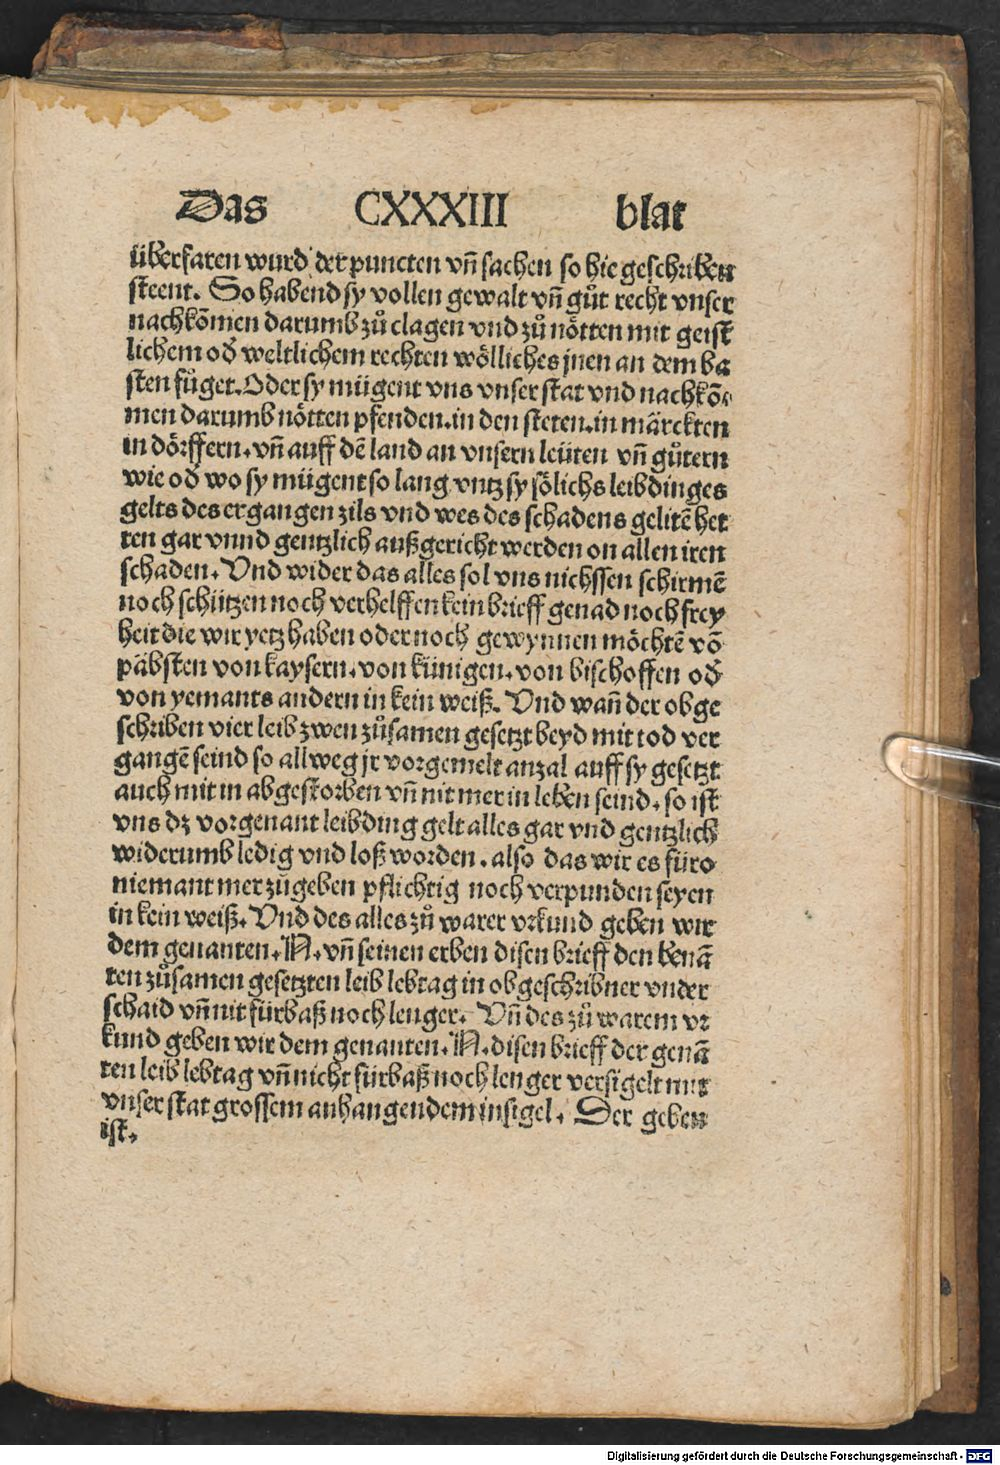 Das CXXXIII blat
überfaren wurd der puncten vñ sachen so hie geschriben
steent. So habend sy vollen gewalt vñ gůt recht vnser
nachkõmen darumb zů clagen vnd zů nötten mit geist
lichem oď weltlichem rechten wölliches jnen an dem ba
sten fůget. Oder sy mügent vns vnser stat vnd nachkõ
men darumb nötten pfenden. in den steten. in märckten
in dörffern. vñ auff dẽ land an vnsern leüten vñ gůtern
wie oď wo sy mügent so lang vntz sy sölichs leibdinges
gelts des ergangen zils vnd wes des schadens gelitẽ het
ten gar vnnd gentzlich außgericht werden on allen iren
schaden. Vnd wider das alles sol vns nichssen schirmẽ
noch schützen noch verhelffen kein brieff genad noch frey
heit die wir yetz haben oder noch gewynnen möchtẽ võ
päbsten von kaysern. von künigen. von bischoffen oď
von yemants andern in kein weiß. Vnd wañ der obge
schriben vier leib zwen zůsamen gesetzt beyd mit tod ver
gangẽ seind so allweg jr vorgemelt anzal auff sy gesetzt
auch mit in abgestorben vñ nit mer in leben seind. so ist
vns dz vorgenant leibding gelt alles gar vnd gentzlich
widerumb ledig vnd loß worden. also das wir es füro
niemant mer zůgeben pflichtig noch verpunden seyen
in kein weiß. Vnd des alles zů warer vrkund geben wir
dem genanten. N. vñ seinen erben disen brieff den benã
ten zůsamen gesetzten leib lebtag in obgeschribner vnder
schaid vñ nit fürbaß noch lenger. Vñ des zů warem vr
kund geben wir dem genanten. N. disen brieff der genã
ten leib lebtag vñ nicht fürbaß noch lenger versigelt mit
vnser stat grossem anhangendem insigel. Der geben
ist.
Digitalisierung gefördert durch die Deutsche Forschungsgemeinschaft - DFG